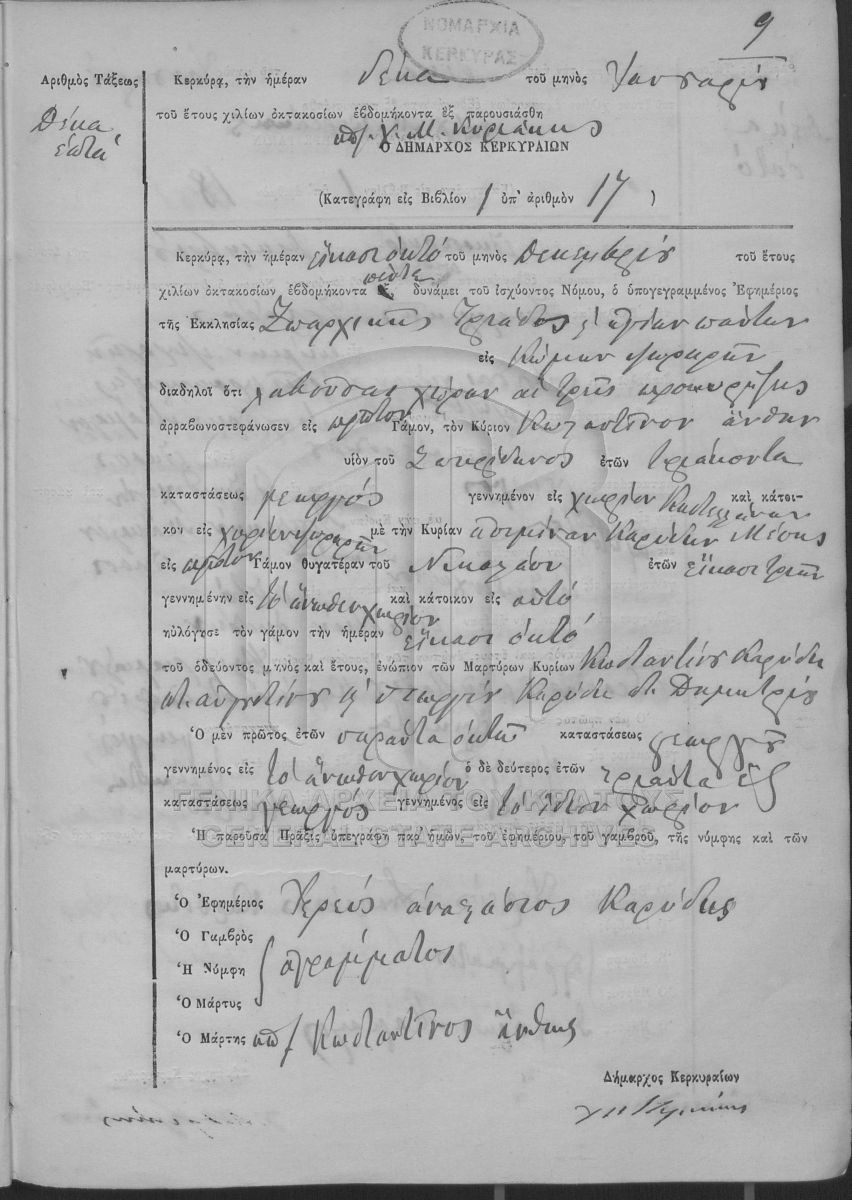 ΝΟΜΑΡΧΙΑ
ΚΕΡΚΥΡΑΣ
9
Ἀριθμὸς Τάξεως
Δέκα
ἑπτά
Κερκύρᾳ, τὴν ἡμέραν δέκα τοῦ μηνὸς Ἰανουαρίου
τοῦ ἔτους χιλίων ὀκτακοσίων ἑβδομήκοντα ἓξ παρουσιάσθη
Ὁ ΔΗΜΑΡΧΟΣ ΚΕΡΚΥΡΑΙΩΝ
(Κατεγράφη εἰς Βιβλίον 1 ὑπ' ἀριθμὸν 17 )
Κερκύρᾳ, τὴν ἡμέραν εἴκοσι ὀκτὼ τοῦ μηνὸς Δεκεμβρίου τοῦ ἔτους
πέντε
χιλίων ὀκτακοσίων ἑβδομήκοντα ἓξ, δυνάμει τοῦ ἰσχύοντος Νόμου, ὁ ὑπογεγραμμένος Ἐφημέριος
τῆς Ἐκκλησίας Ζωαρχικῆς Τριάδος
εἰς Κώμην
διαδηλοῖ ὅτι λαβοῦσαι χώραν αἱ τρεῖς προκηρύξεις
ἀρραβωνοστεφάνωσεν εἰς πρῶτον Γάμον, τὸν Κύριον Κωσταντῖνον Ἄνθην
υἱὸν τοῦ Σπυρίδωνος ἐτῶν τριάκοντα
καταστάσεως γεωργός γεννημένον εἰς χωρίον καὶ κάτοι-
κον εἰς χωρίον μὲ τὴν Κυρίαν Καρύδη Μέσης
εἰς πρῶτον Γάμον θυγατέραν τοῦ Νικολάου ἐτῶν εἴκοσι τριῶν
γεννημένην εἰς τὸ ἄνωθεν χωρίον καὶ κάτοικον εἰς αὐτό
ηὐλόγησε τὸν γάμον τὴν ἡμέραν εἴκοσι ὀκτώ
τοῦ ὁδεύοντος μηνὸς καὶ ἔτους, ἐνώπιον τῶν Μαρτύρων Κυρίων Κωσταντίνου Καρύδη
Γεωργίου Καρύδη Δημητρίου
Ὁ μὲν πρῶτος ἐτῶν σαράντα ὀκτώ καταστάσεως γεωργός
γεννημένος εἰς τὸ ἄνωθεν χωρίον ὁ δὲ δεύτερος ἐτῶν τριάντα ἓξ
καταστάσεως γεωργός γεννημένος εἰς τὸ ἴδιον χωρίον
ΓΕΝΙΚΑ ΑΡΧΕΙΑ ΤΟΥ ΚΡΑΤΟΥΣ
GENERAL STATE ARCHIVES
Ἡ παροῦσα Πρᾶξις ὑπεγράφη παρ' ἡμῶν, τοῦ ἐφημερίου, τοῦ γαμβροῦ, τῆς νύμφης καὶ τῶν
μαρτύρων.
Ὁ Ἐφημέριος Ἱερεύς ἀναστάσιος Καρύδης
Ὁ Γαμβρὸς
Ἡ Νύμφη ἀγράμματος
Ὁ Μάρτυς
Ὁ Μάρτης Κωσταντῖνος Ἄνθης
Δήμαρχος Κερκυραίων